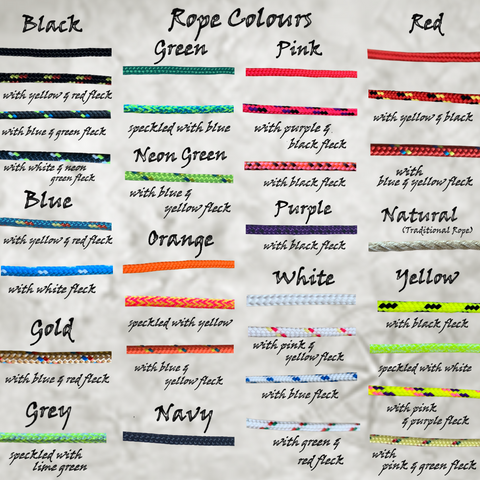 Rope Colours
Black
with yellow & red fleck
with blue & green fleck
with white & neon
green fleck
Blue
with yellow & red fleck
with white fleck
Gold
with blue & red fleck
Grey
speckled with
lime green
Green
speckled with blue
Neon Green
with blue &
yellow fleck
Orange
speckled with yellow
with blue &
yellow fleck
Navy
Pink
with purple &
black fleck
with black fleck
Purple
with black fleck
White
with pink &
yellow fleck
with blue fleck
with green &
red fleck
Red
with yellow & black
with
blue & yellow fleck
Natural
(Traditional Rope)
Yellow
with black fleck
speckled with white
with pink
& purple fleck
with
pink & green fleck